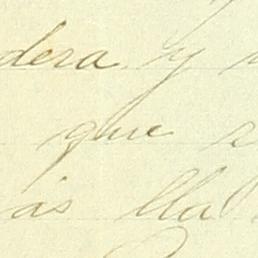 dera y
que
ás lla